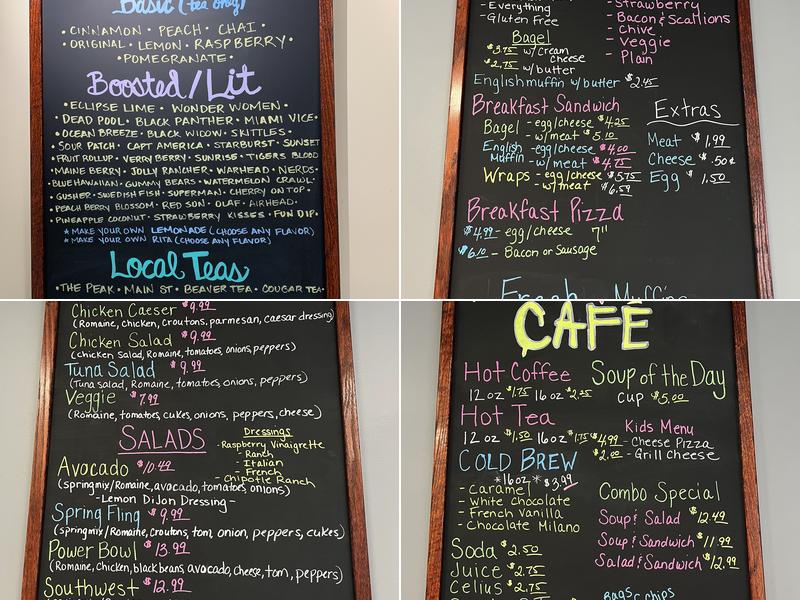 Basic (tea only)
• CINNAMON • PEACH • CHAI
• ORIGINAL • LEMON • RASPBERRY •
• POMEGRANATE •
Boosted/Lit
• ECLIPSE LIME • WONDER WOMEN •
• DEAD POOL • BLACK PANTHER • MIAMI VICE •
• OCEAN BREEZE • BLACK WIDOW • SKITTLES •
• SOUR PATCH • CAPT AMERICA • STARBURST • SUNSET
• FRUIT ROLLUP • VERRY BERRY • SUNRISE • TIGERS BLOOD
• MAINE BERRY • JOLLY RANCHER • WARHEAD • NERDS •
• BLUE HAWAIIAN • GUMMY BEARS • WATERMELON CRAWL •
• GUSHER • SWEDISH FISH • SUPERMAN • CHERRY ON TOP •
• PEACH BERRY BLOSSOM • RED SON • OLAF • AIRHEAD •
• PINEAPPLE COCONUT • STRAWBERRY KISSES • FUN DIP •
* MAKE YOUR OWN LEMONADE (CHOOSE ANY FLAVOR)
* MAKE YOUR OWN RITA (CHOOSE ANY FLAVOR)
Local Teas
• THE PEAK • MAIN ST • BEAVER TEA • COUGAR TEA •
- Everything
- Gluten Free
- Strawberry
- Bacon & Scallions
- Chive
- Veggie
- Plain
Bagel
$3.75 w/cream cheese
$2.75 w/butter
English muffin w/butter $2.45
Breakfast Sandwich
Bagel - egg/cheese $4.25
- w/meat $5.10
English Muffin - egg/cheese $4.00
- w/meat $4.75
Wraps - egg/cheese $5.75
- w/meat $6.59
Extras
Meat $1.99
Cheese $.50¢
Egg $1.50
Breakfast Pizza
$4.99 - egg/cheese 7"
$6.10 - Bacon or Sausage
Fresh Muffins
Chicken Caeser $9.99
(Romaine, chicken, croutons, parmesan, caesar dressing)
Chicken Salad $9.99
(chicken Salad, Romaine, tomatoes, onions, peppers)
Tuna Salad $9.99
(Tuna salad, Romaine, tomatoes, onions, peppers)
Veggie $7.99
(Romaine, tomatoes, cukes, onions, peppers, cheese)
SALADS
Dressings
- Raspberry Vinaigrette
- Ranch
- Italian
- French
- Chipotle Ranch
Avocado $10.49
(springmix/Romaine, avocado, tomatoes, onions)
- Lemon DiJon Dressing -
Spring Fling $9.99
(springmix/Romaine, croutons, tom, onion, peppers, cukes)
Power Bowl $13.99
(Romaine, chicken, black beans, avocado, cheese, tom, peppers)
Southwest $12.99
CAFE
Hot Coffee
12 oz $1.75 16 oz $2.25
Hot Tea
12 oz $1.50 16 oz $1.75
COLD BREW
*16oz* $3.99
- Caramel
- White Chocolate
- French Vanilla
- Chocolate Milano
Soda $2.50
Juice $2.75
Celius $2.75
Soup of the Day
Cup $5.00
Kids Menu
$4.99 - Cheese Pizza
$2.00 - Grill Cheese
Combo Special
Soup & Salad $12.49
Soup & Sandwich $11.99
Salad & Sandwich $12.99
BAGS CHIPS